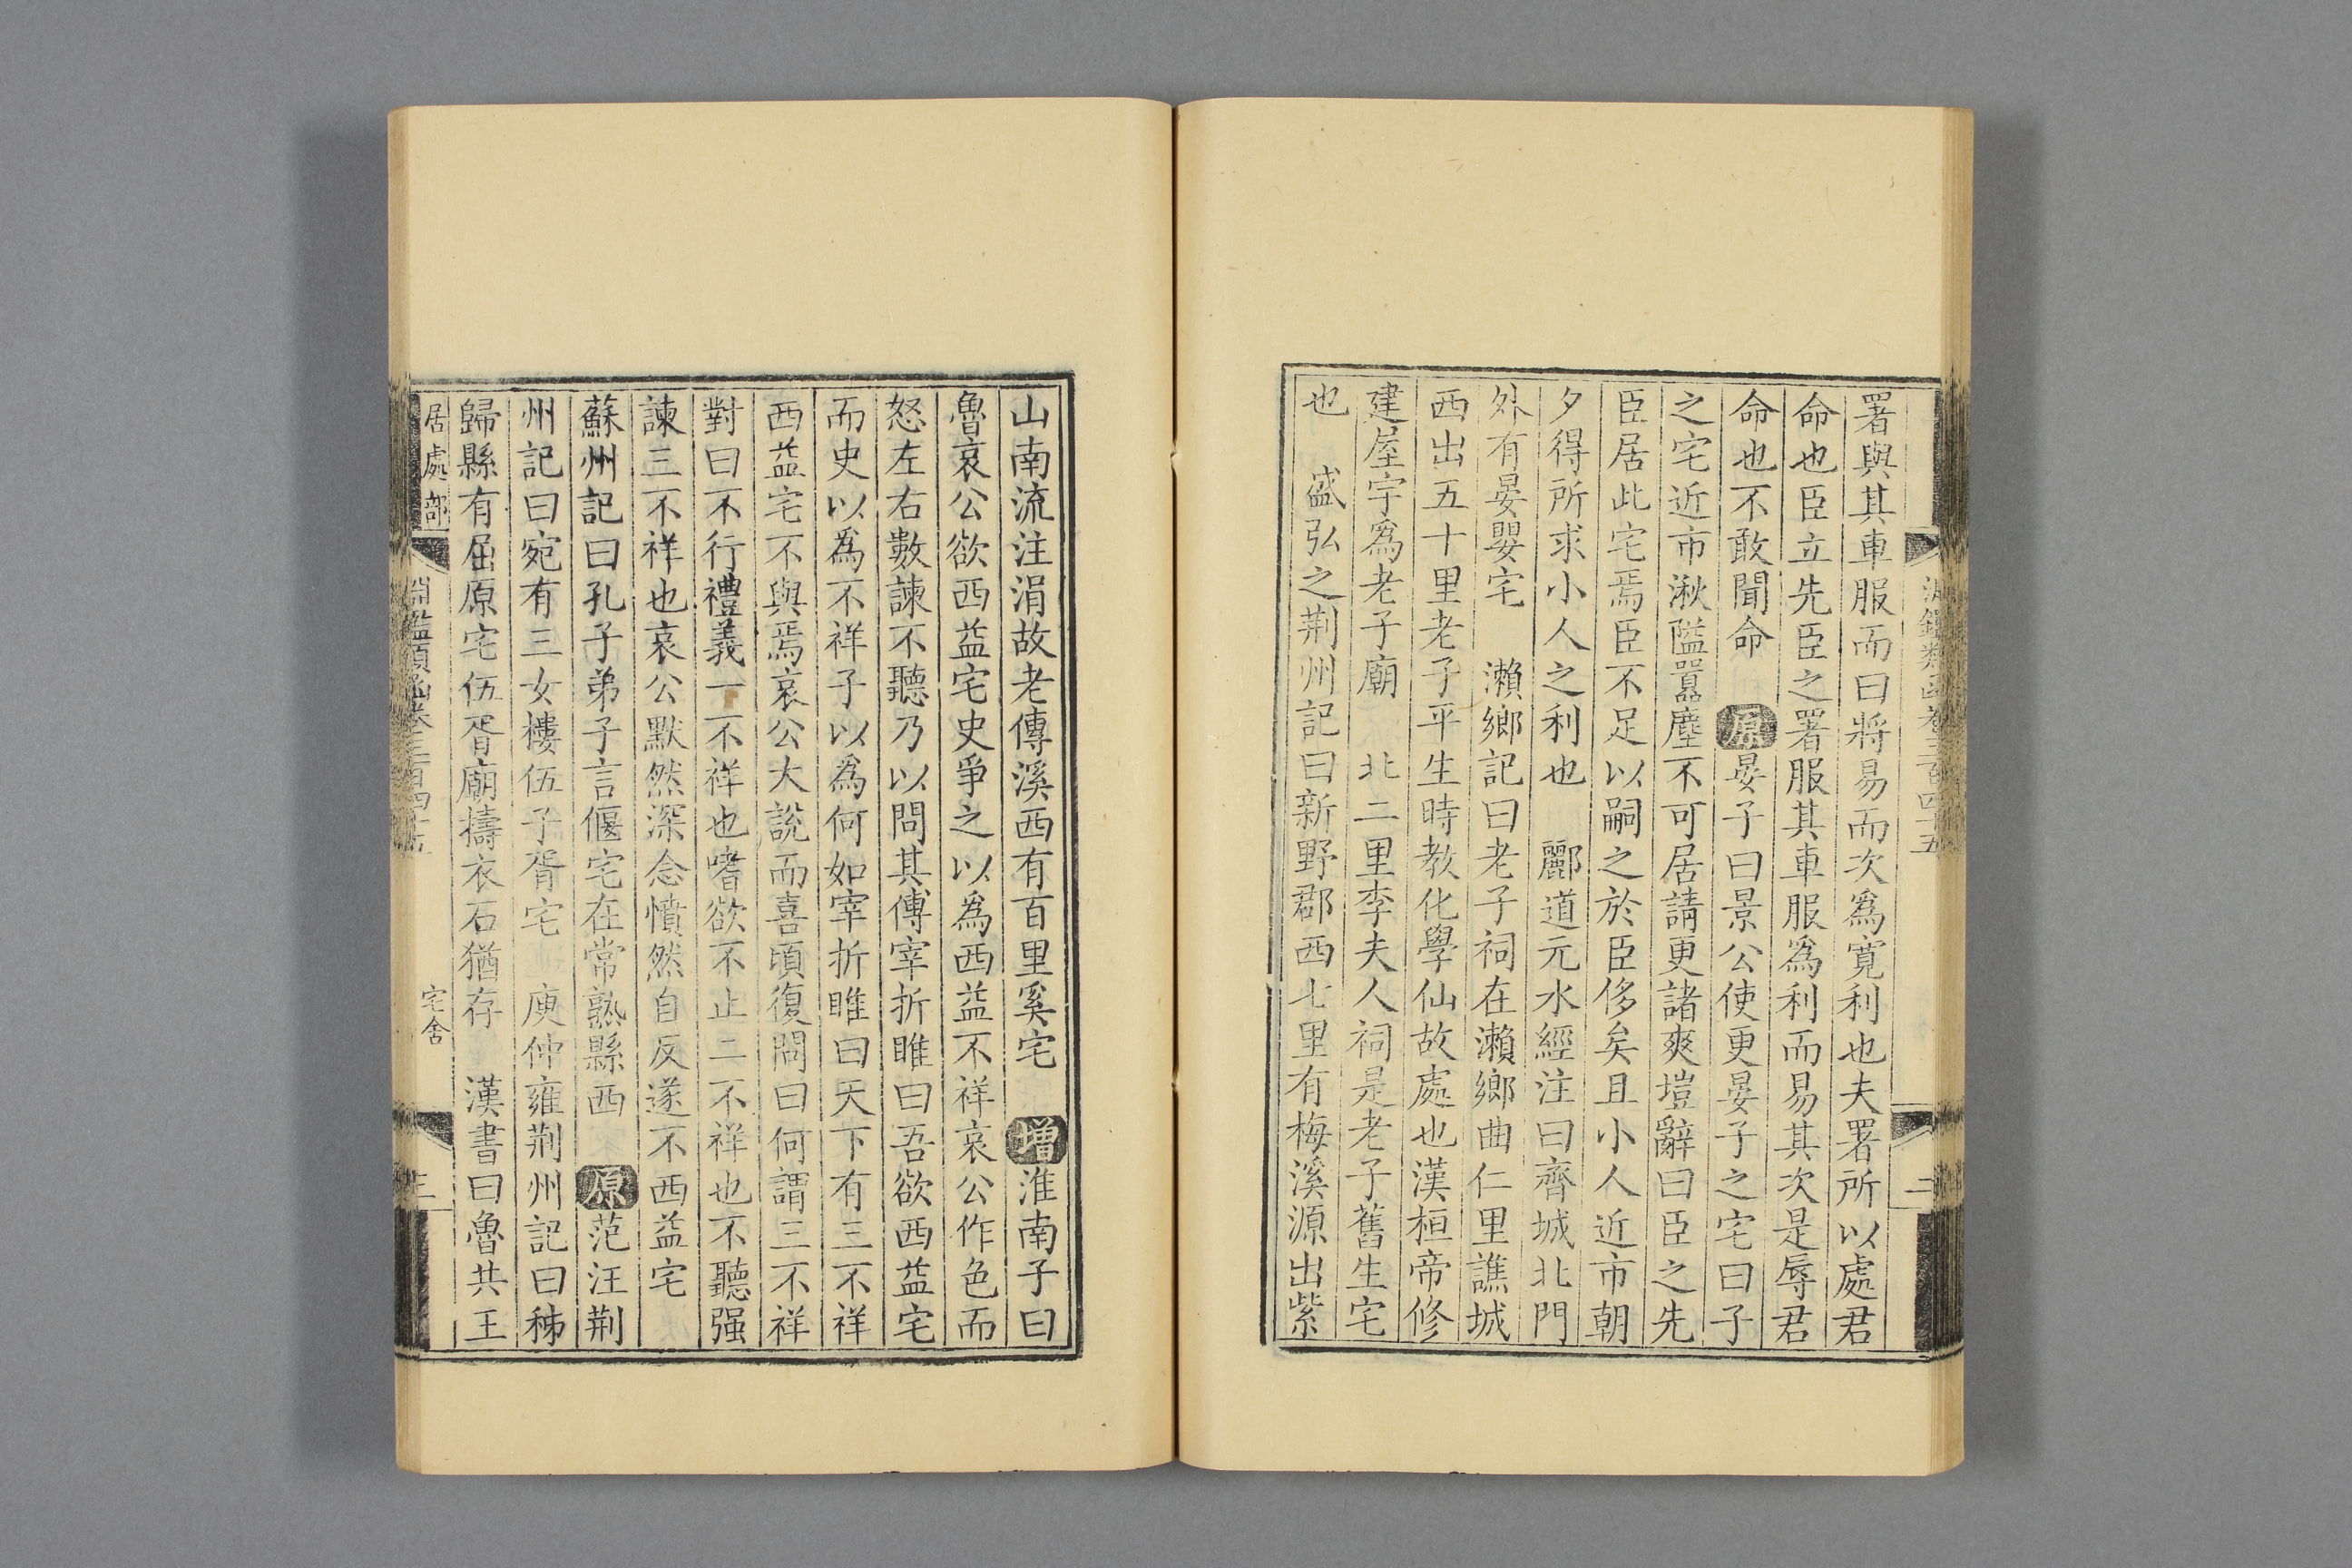 淵鑑類函卷三百四十五
二
署與其車服而曰將易而次爲寛利也夫署所以處君
命也臣立先臣之署服其車服爲利而易其次是辱君
命也不敢聞命 原晏子曰景公使更晏子之宅曰子
之宅近市湫隘嚣塵不可居請更諸爽塏辭曰臣之先
臣居此宅焉臣不足以嗣之於臣侈矣且小人近市朝
夕得所求小人之利也 酈道元水經注曰齊城北門
外有晏嬰宅 瀨鄉記曰老子祠在瀨鄉曲仁里譙城
西出五十里老子平生時教化學仙故處也漢桓帝修
建屋宇爲老子廟 北二里李夫人祠是老子舊生宅
也 盛弘之荆州記曰新野郡西七里有梅溪源出紫
山南流注涓故老傳溪西有百里奚宅 增淮南子曰
魯哀公欲西益宅史爭之以爲西益不祥哀公作色而
怒左右數諫不聽乃以問其傅宰折睢曰吾欲西益宅
而史以為不祥子以為何如宰折睢曰天下有三不祥
西益宅不與焉哀公大說而喜頃復問曰何謂三不祥
對曰不行禮義一不祥也嗜欲不止二不祥也不聽强
諫三不祥也哀公默然深念憤然自反遂不西益宅
蘇州記曰孔子弟子言偃宅在常熟縣西 原范汪荆
州記曰宛有三女樓伍子胥宅 庾仲雍荆州記曰秭
歸縣有屈原宅伍胥廟擣衣石猶存 漢書曰魯共王
居處部 淵鑑類函卷三百四十五 宅舍 三